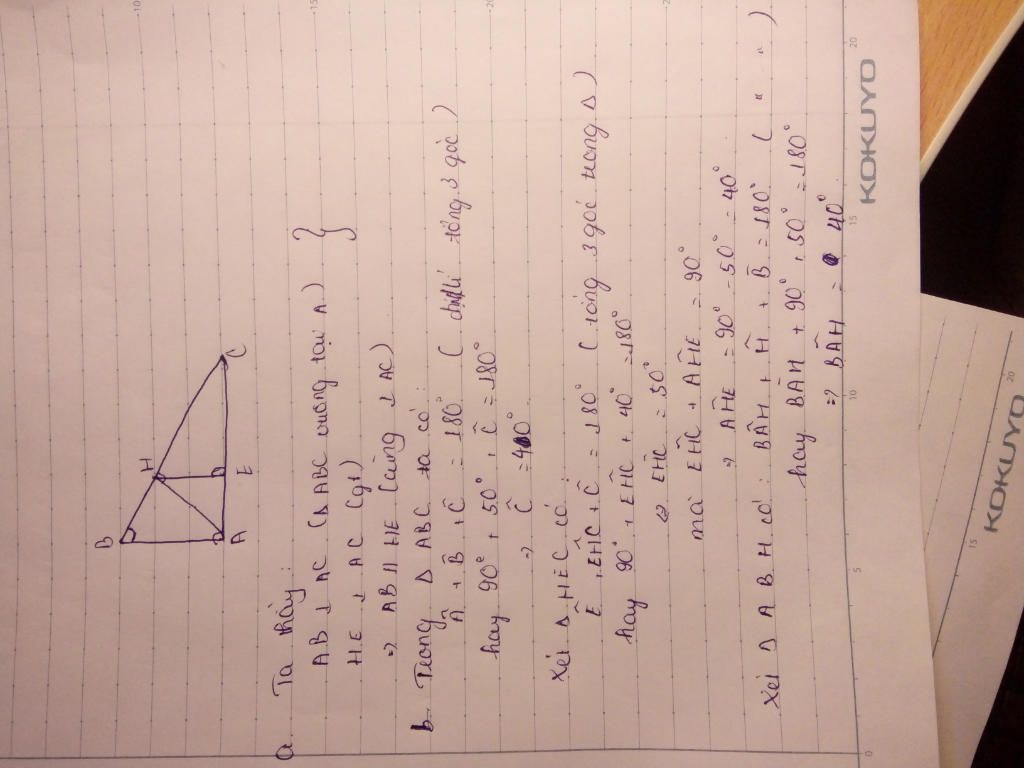 B
H
A
E
C
a. Ta thấy:
AB ⊥ AC (Δ ABC vuông tại A) }
HE ⊥ AC (gt)
=> AB // HE (cùng ⊥ AC)
b. Trong Δ ABC ta có:
Â + B̂ + Ĉ = 180° ( định lí tổng 3 góc )
hay 90° + 50° + Ĉ = 180°
=> Ĉ = 40°
Xét Δ HEC có:
Ê + EĤC + Ĉ = 180° ( tổng 3 góc trong Δ )
hay 90° + EĤC + 40° = 180°
=> EĤC = 50°
mà EĤC + AĤE = 90°
=> AĤE = 90° - 50° = 40°
Xét Δ ABH có: BÂH + Ĥ + B̂ = 180° ( " " " )
hay BÂH + 90° + 50° = 180°
=> BÂH = 40°
0 5 10 15 20
KOKUYO
-10 -15 -20
15 20
KOKUYO